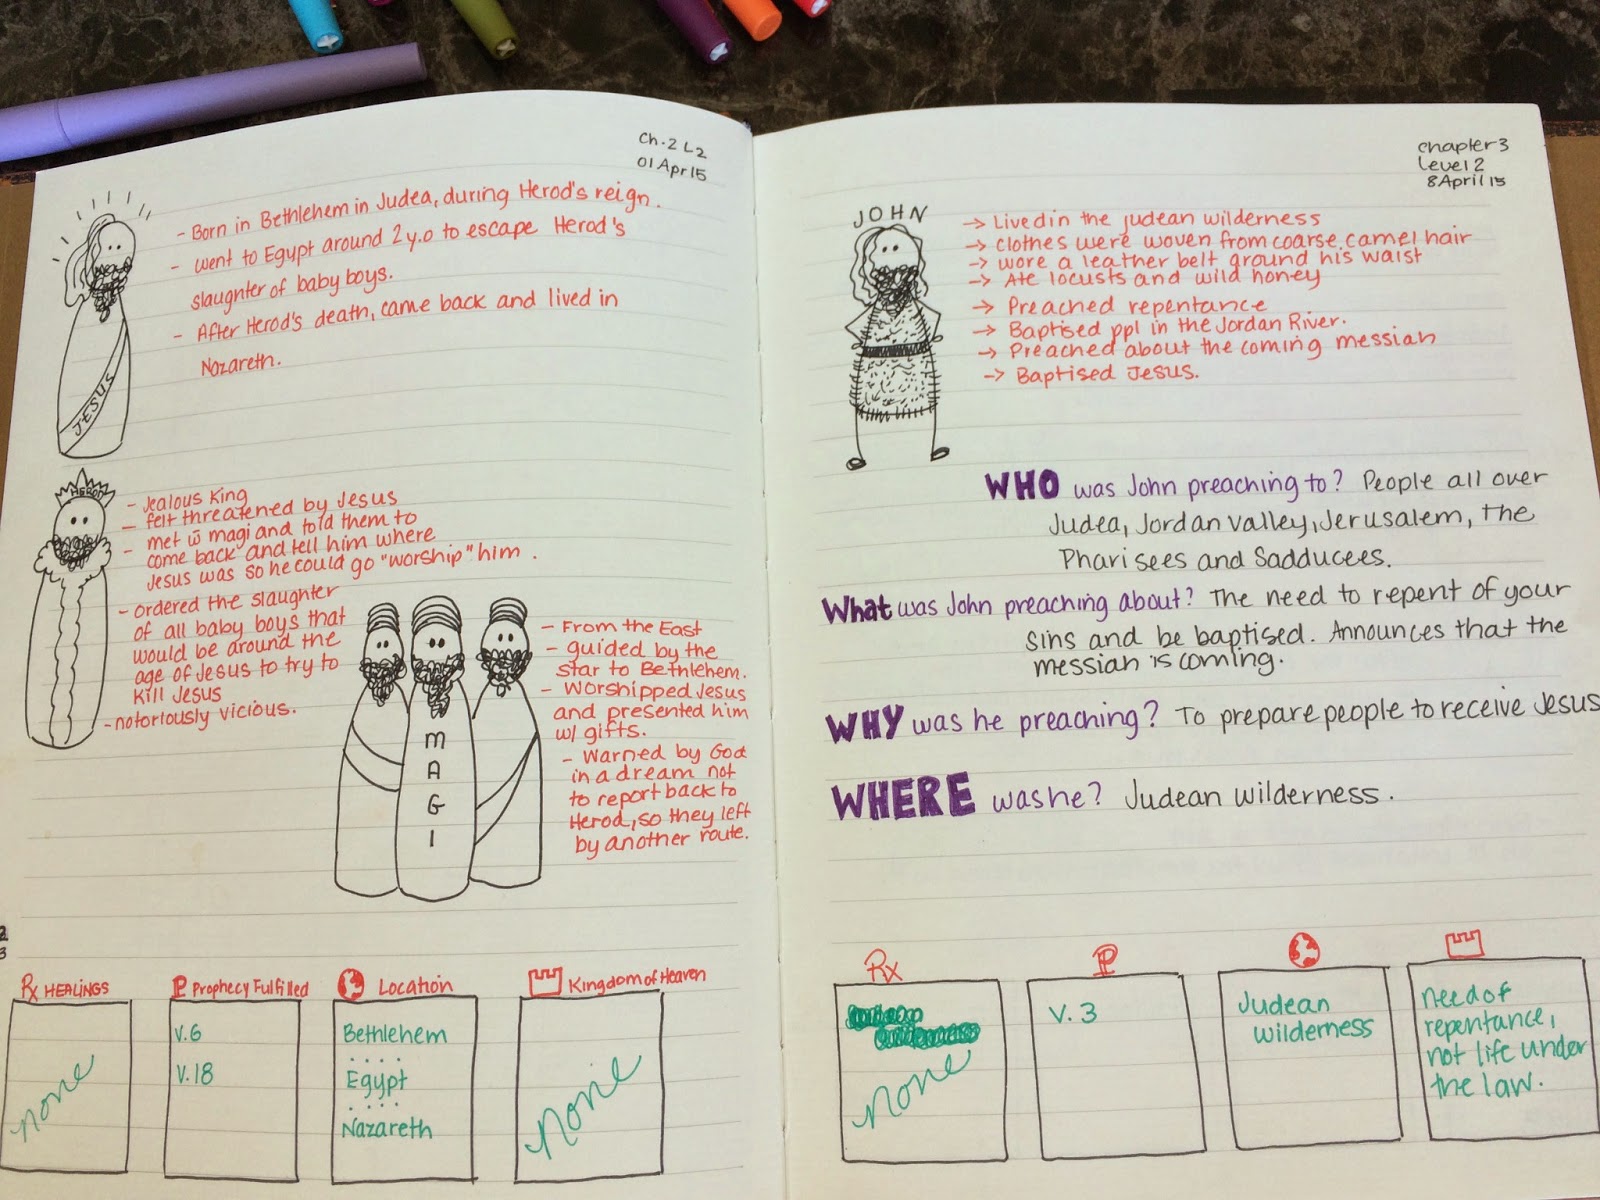 Ch. 2 L2
01 Apr 15
- Born in Bethlehem in Judea, during Herod's reign.
- went to Egypt around 2 y.o to escape Herod's
slaughter of baby boys.
- After Herod's death, came back and lived in
Nazareth.
JESUS
HEROD
- Jealous King
- felt threatened by Jesus
- met w̄ magi and told them to
come back and tell him where
Jesus was so he could go "worship" him.
- ordered the slaughter
of all baby boys that
would be around the
age of Jesus to try to
kill Jesus
- notoriously vicious.
MAGI
- From the East
- guided by the
star to Bethlehem.
- Worshipped Jesus
and presented him
w/ gifts.
- Warned by God
in a dream not
to report back to
Herod, so they left
by another route.
2
3
Rx HEALINGS
P Prophecy Fulfilled
Location
Kingdom of Heaven
none
v.6
v.18
Bethlehem
Egypt
Nazareth
none
chapter 3
Level 2
8 April 15
JOHN
→ Lived in the judean wilderness
→ clothes were woven from coarse camel hair
→ wore a leather belt around his waist
→ Ate locusts and wild honey
→ Preached repentance
→ Baptised ppl in the Jordan River.
→ Preached about the coming messiah
→ Baptised Jesus.
WHO was John preaching to? People all over
Judea, Jordan valley, Jerusalem, the
Pharisees and Sadducees.
What was John preaching about? The need to repent of your
sins and be baptised. Announces that the
messiah is coming.
WHY was he preaching? To prepare people to receive Jesus
WHERE was he? Judean wilderness.
Rx
P
none
v. 3
Judean
wilderness
need of
repentance,
not life under
the law.